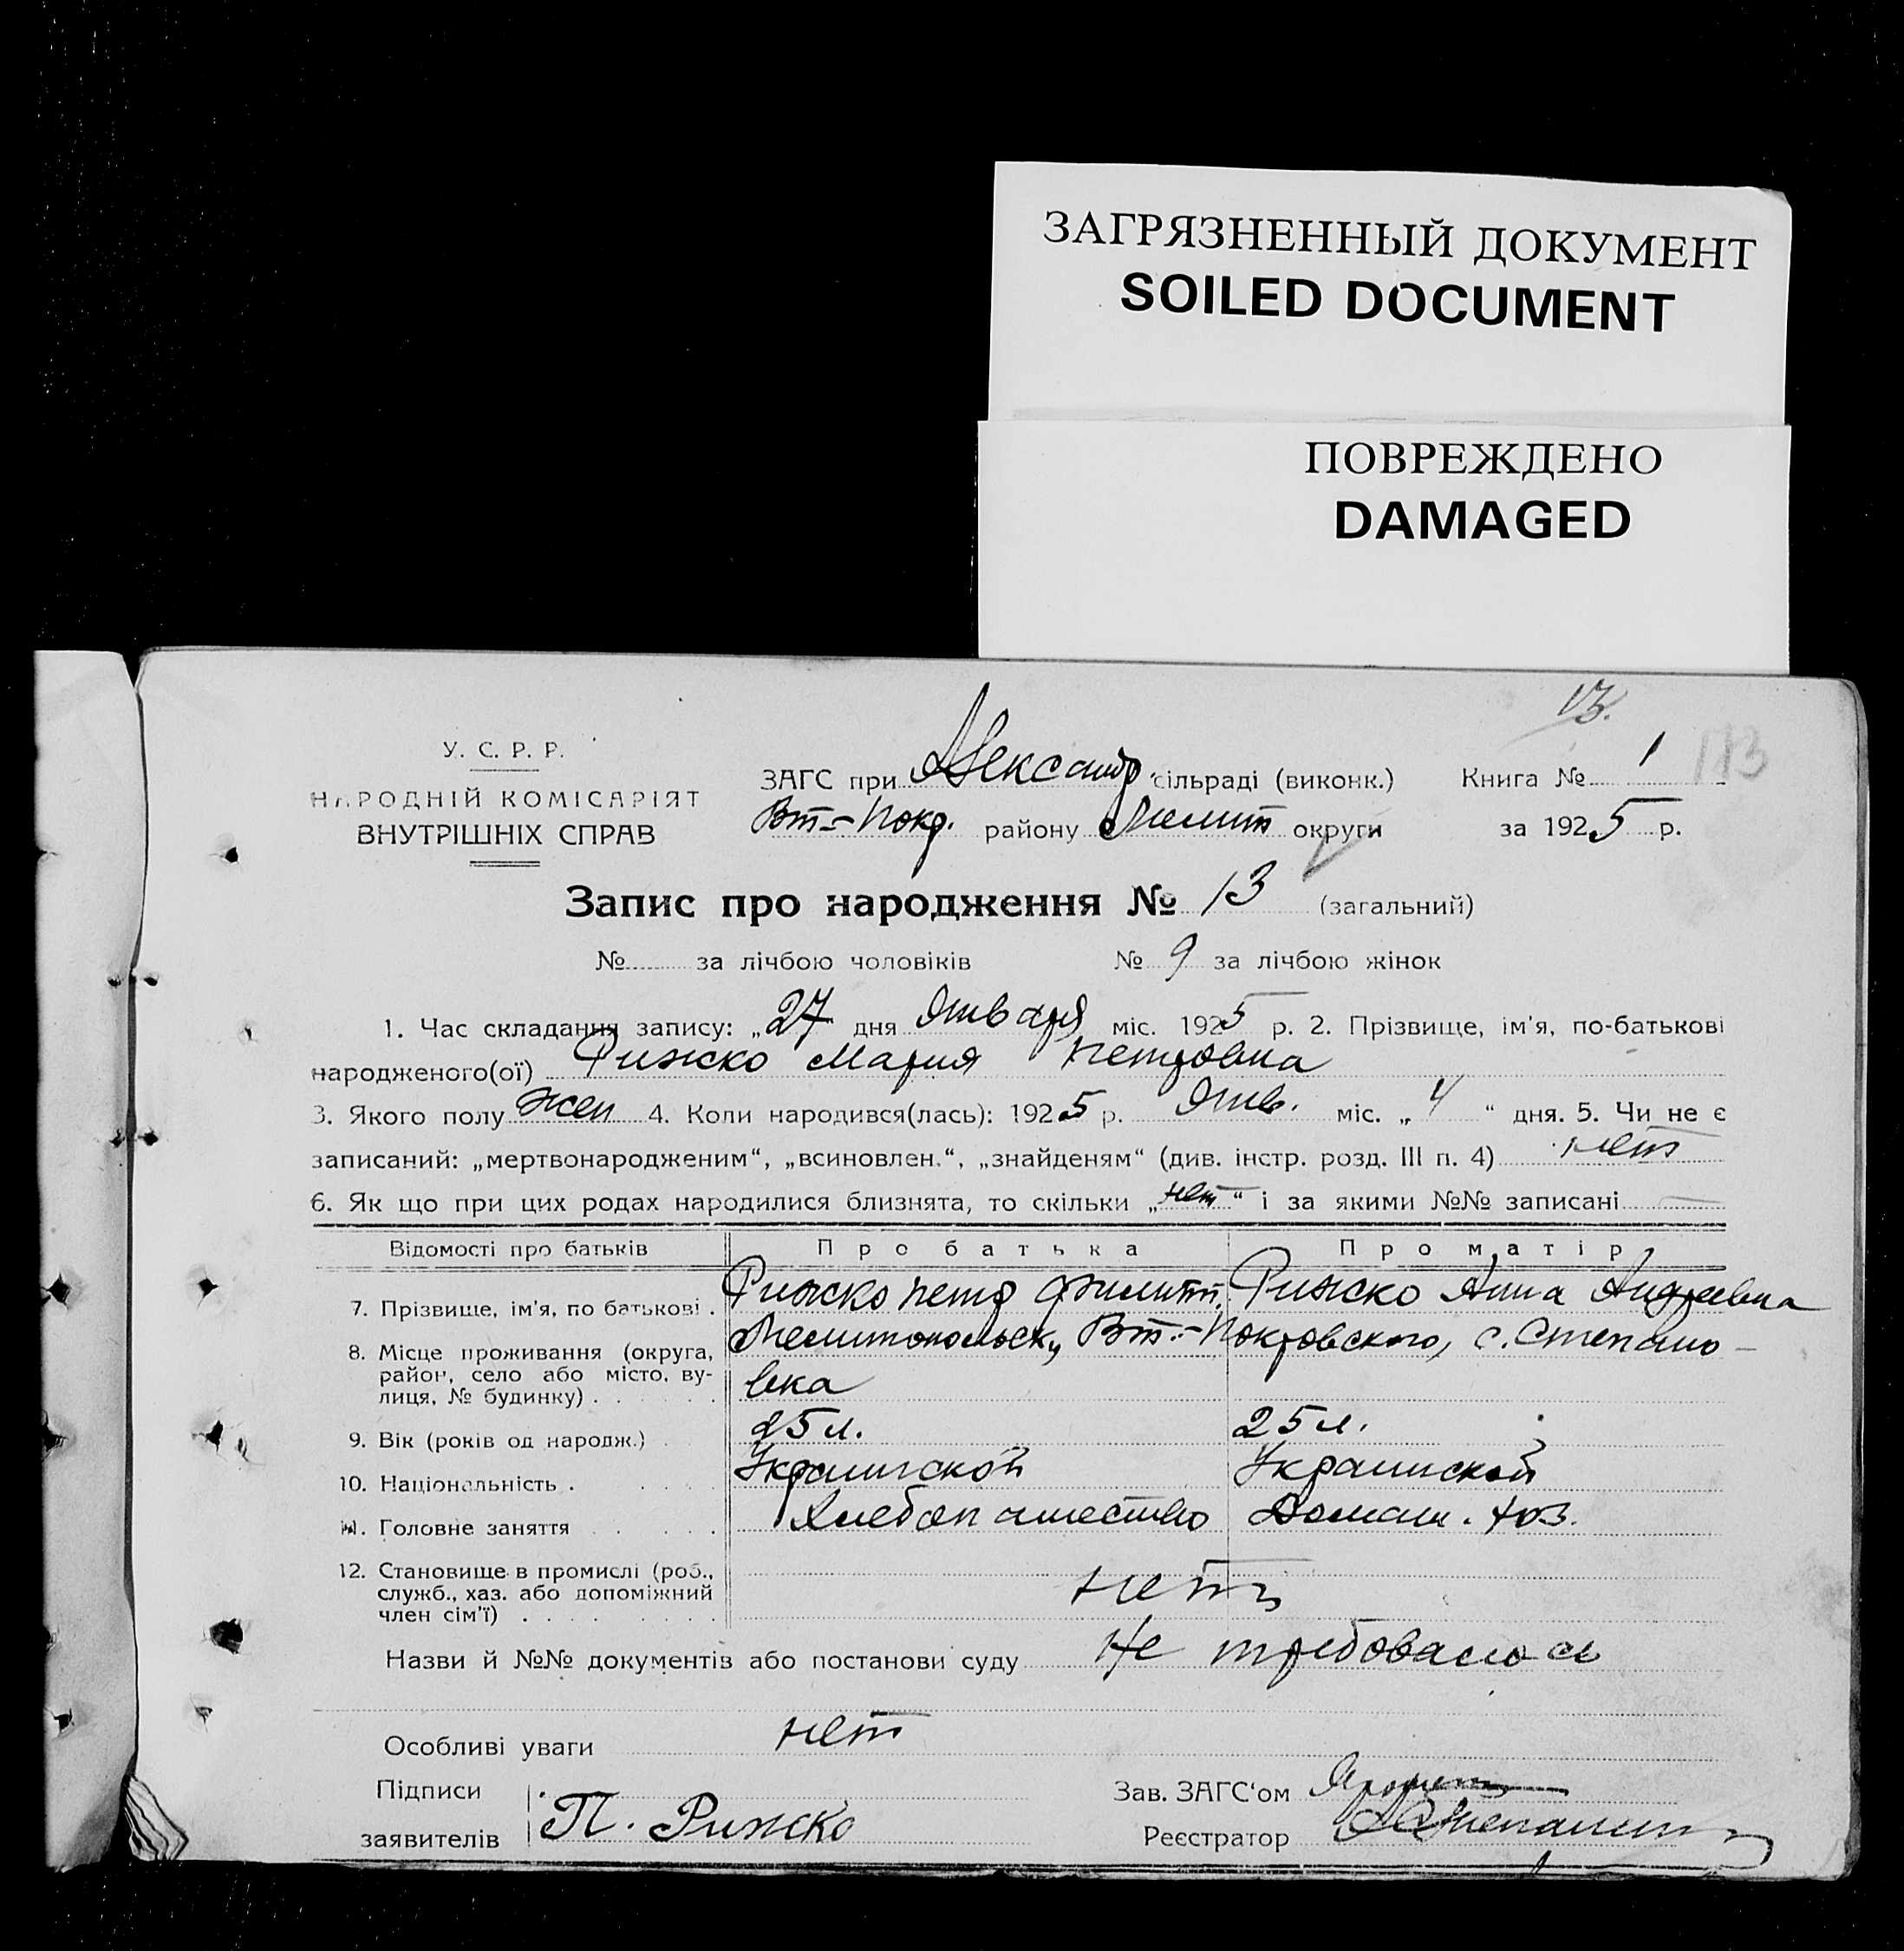 ЗАГРЯЗНЕННЫЙ ДОКУМЕНТ
SOILED DOCUMENT
ПОВРЕЖДЕНО
DAMAGED
13.
У. С. Р. Р.
НАРОДНІЙ КОМІСАРІЯТ
ВНУТРІШНІХ СПРАВ
ЗАГС при Александр. сільраді (виконк.) Книга № 1 113
Вт.-Покр. району Мелит округи за 1925 р.
Запис про народження № 13 (загальний)
№ за лічбою чоловіків № 9 за лічбою жінок
1. Час складання запису: „27" дня Января міс. 1925 р. 2. Прізвище, ім'я, по-батькові
народженого(ої) Рижско Мария Петровна
3. Якого полу жен 4. Коли народився(лась): 1925 р. Янв. міс. „4“ дня. 5. Чи не є
записаний: „мертвонародженим“, „всиновлен.“, „знайденям“ (див. інстр. розд. III п. 4) нет
6. Як що при цих родах народилися близнята, то скільки „нет“ і за якими №№ записані
Відомості про батьків Про батька Про матір
7. Прізвище, ім'я, по батькові . Рижско Петр Филипп. Рижско Анна Андреевна
8. Місце проживання (округа, район, село або місто, вулиця, № будинку) . Мелитопольск, Вт.-Покровского, с. Степано-
вка
9. Вік (років од народж.) 25 л. 25 л.
10. Національність . Украинской Украинской
11. Головне заняття Хлебопашество Домаш. хоз.
12. Становище в промислі (роб., служб., хаз. або допоміжний член сім'ї) нет
Назви й №№ документів або постанови суду Не требовалось
Особливі уваги нет
Підписи Зав. ЗАГС'ом
заявителів П. Рижско Реєстратор